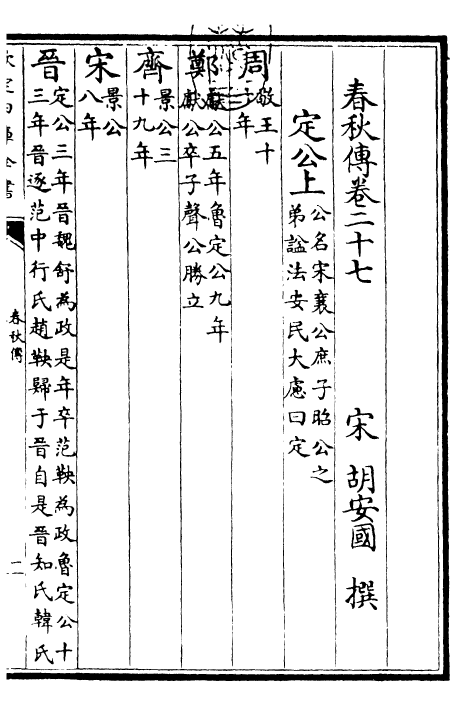 春秋傳卷二十七
宋 胡安國 撰
定公上 公名宋襄公庶子昭公之
弟諡法安民大慮曰定
周 敬王十
年
鄭 獻公五年魯定公九年
獻公卒子聲公勝立
齊 景公三
十九年
宋 景公
八年
晉 定公三年晉魏舒為政是年卒范鞅為政魯定公十
三年晉逐范中行氏趙鞅歸于晉自是晉知氏韓氏
春秋傳
二